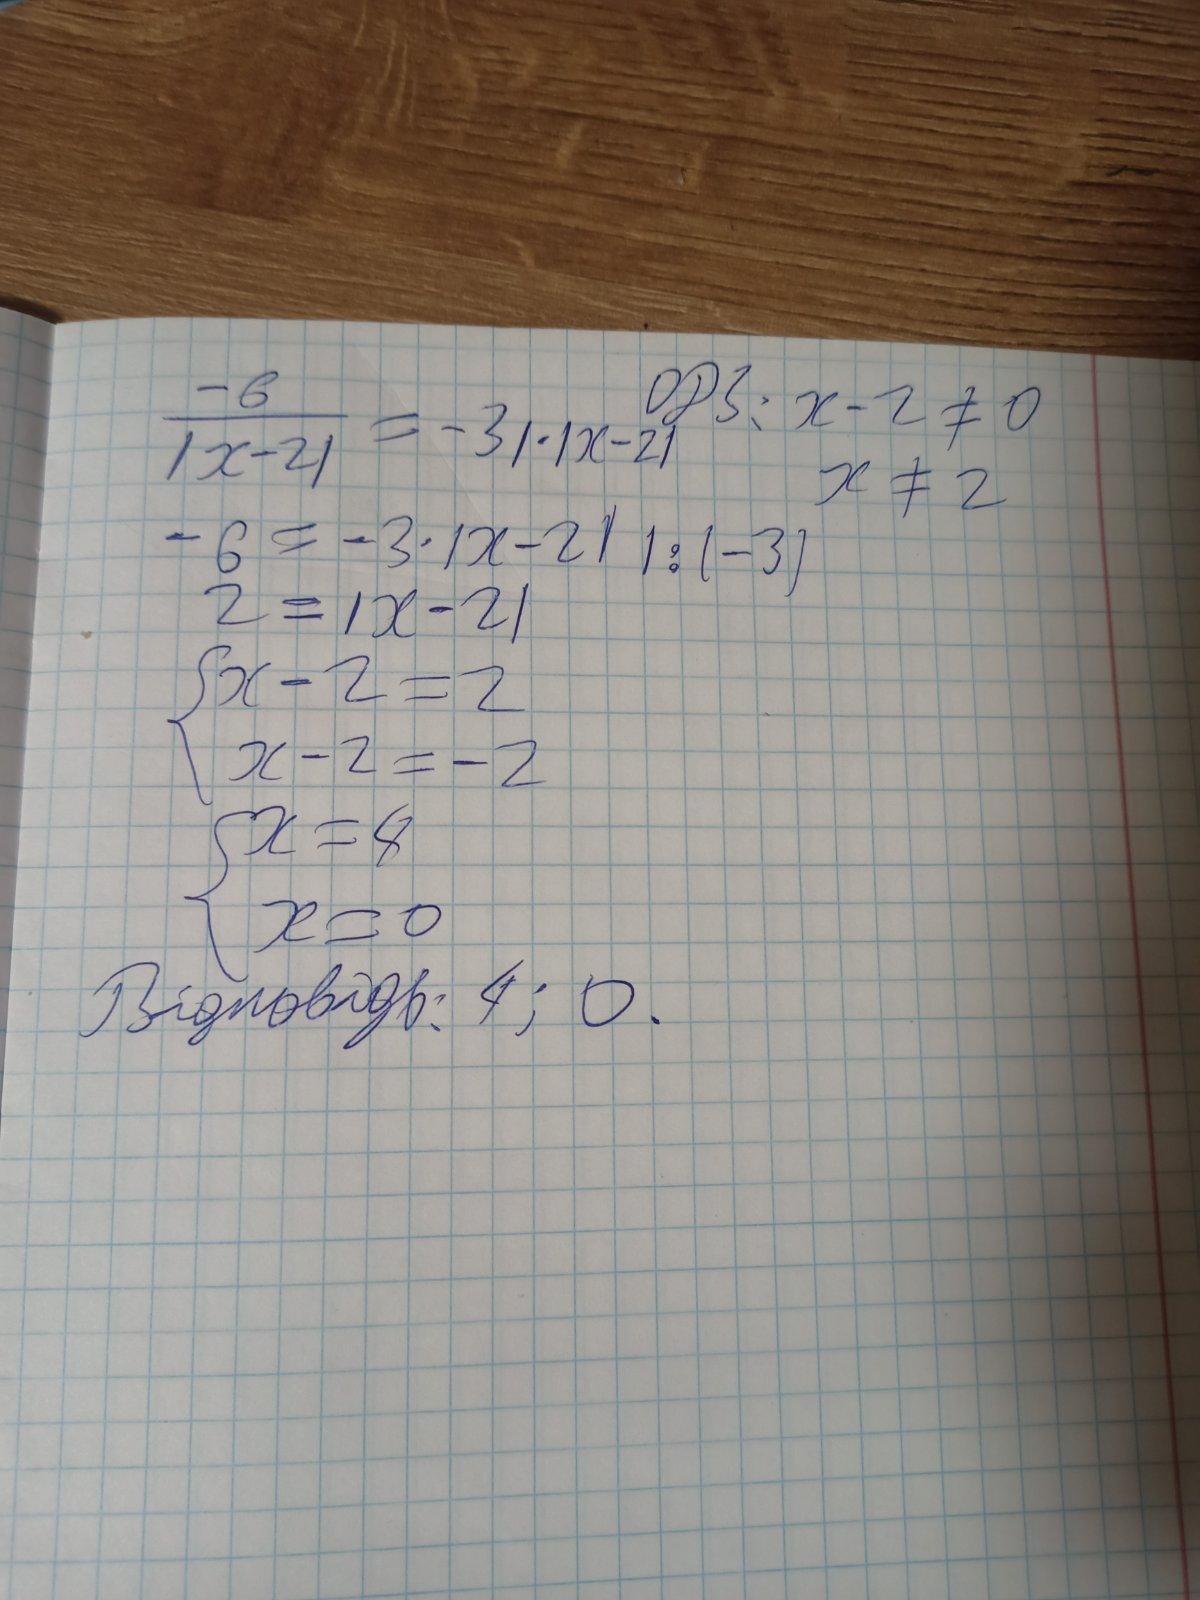 -6/|x-2| = -3 |·|x-2| ОДЗ: x-2≠0
x≠2
-6 = -3·|x-2| |:(-3)
2 = |x-2|
{x-2=2
x-2=-2
{x=4
x=0
Відповідь: 4; 0.